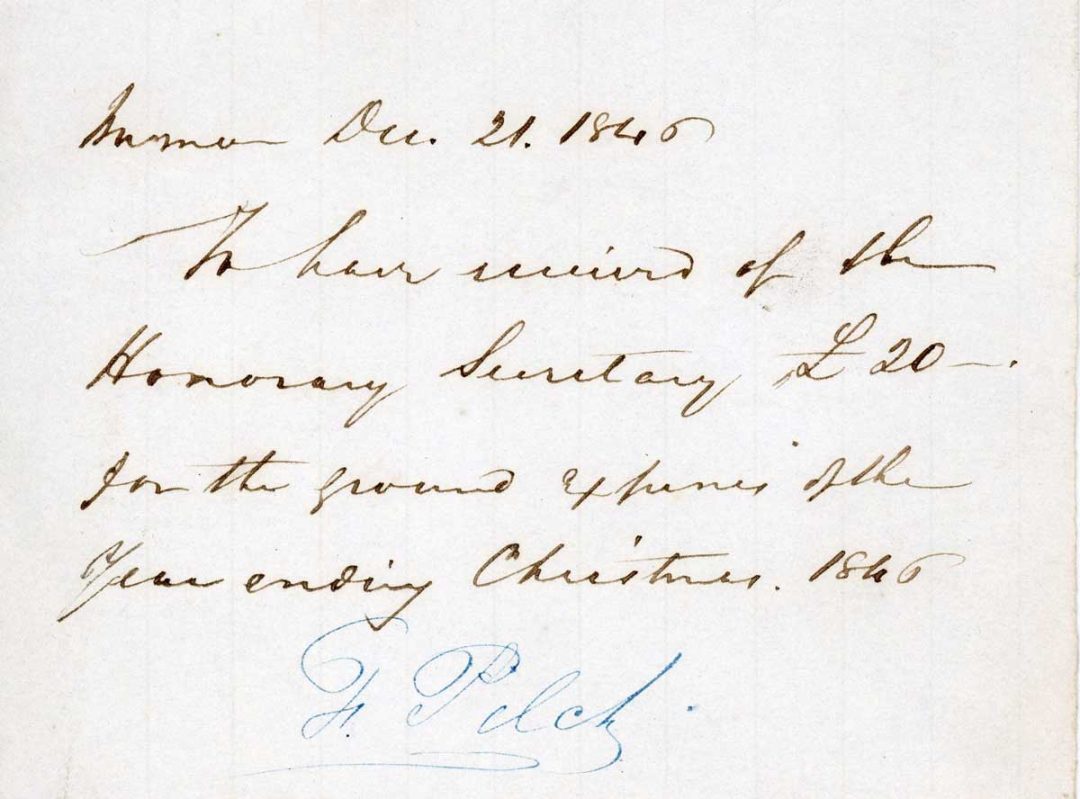 Dec. 21. 1846
To have received of the
Honorary Secretary £20 —.
for the ground expenses of the
Year ending Christmas. 1846
F. Pilch.